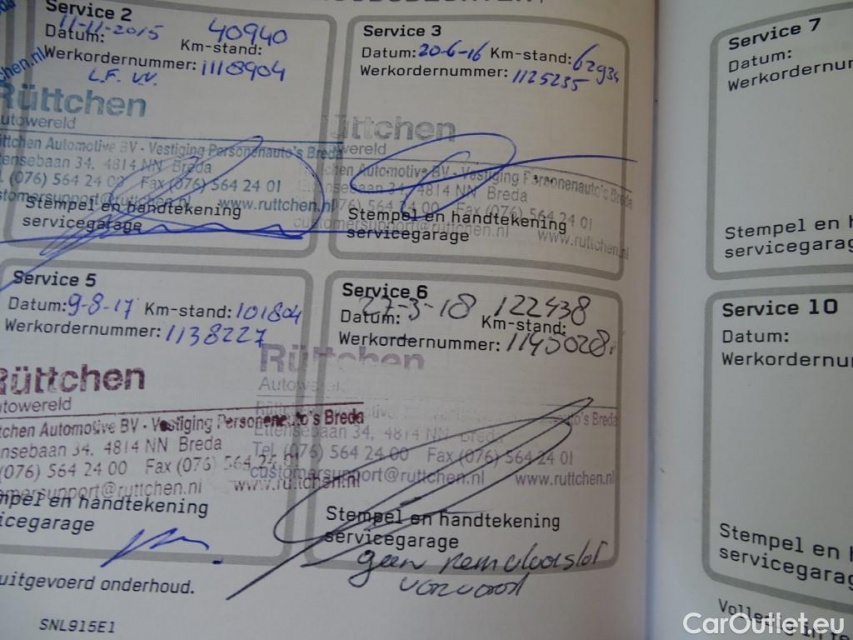 Service 2
11-11-2015
40940
Datum:
Km-stand:
Werkordernummer: 1118904
Rüttchen
utowereld
ttchen Automotive BV - Vestiging Personenauto's Breda
ensebaan 34, 4814 NN Breda
(076) 564 24 00 Fax (076) 564 24 01
stomersupport@ruttchen.nl www.ruttchen.nl
Stempel en handtekening
servicegarage
Service 3
Datum: 20-6-16 Km-stand: 62934
Werkordernummer: 1125235
ttchen
wereld
Automotive BV - Vestiging Personenauto's Breda
4814 NN Breda
Fax (076) 564 24 01
Stempel en handtekening
customersupport@ruttchen.nl www.ruttchen.nl
servicegarage
Service 5
Datum: 9-8-17 Km-stand: 101804
Werkordernummer: 1138227
Rüttchen
utowereld
tchen Automotive BV - Vestiging Personenauto's Breda
nsebaan 34, 4814 NN Breda
(076) 564 24 00 Fax (076) 564 24 01
omersupport@ruttchen.nl www.ruttchen.nl
mpel en handtekening
icegarage
Service 6
27-3-18 122438
Datum:
Km-stand:
Werkordernummer: 1145028
Rüttchen
Ettensebaan 34, 4814 NN Breda
Tel. (076) 564 24 00 Fax (076) 564 24 01
customersupport@ruttchen.nl www.ruttchen.nl
Stempel en handtekening
servicegarage
geen remvloeistof
Service 7
Datum:
Werkordernu
Stempel en h
servicegarag
Service 10
Datum:
Werkordernu
Stempel en h
servicegarag
uitgevoerd onderhoud.
SNL915E1
CarOutlet.eu